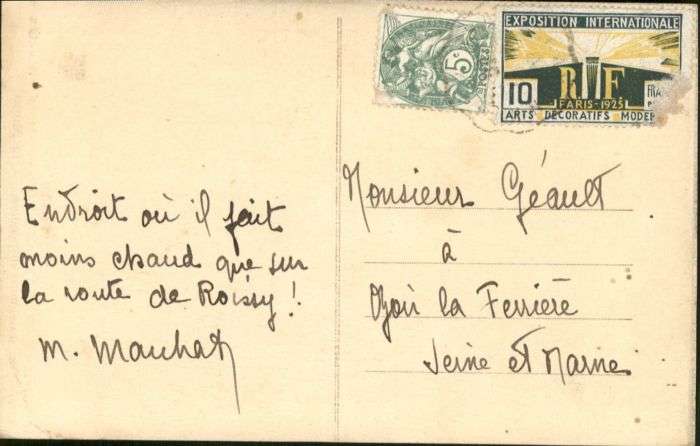 5c
POSTES
EXPOSITION INTERNATIONALE
RF
10
PARIS-1925
ARTS DÉCORATIFS MODER
Endroit où il fait
moins chaud que sur
la route de Roissy !
Monsieur Géault
à
Ozoir la Ferrière
Seine et Marne